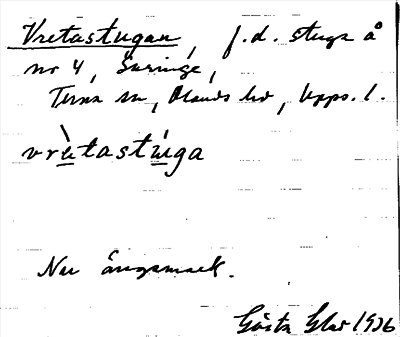 Vretastugan, f.d. stuga å
nr 4, Säringe,
Terna sn, Ölands hd, Upps. l.
vrètastùga
Nu ängsmark.
Gösta Glas 1936